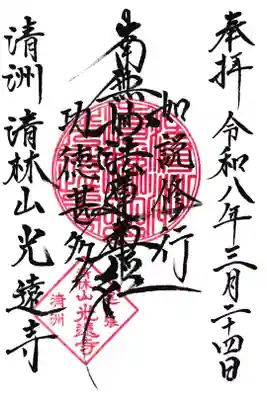 奉拝 令和八年三月二十四日
如説修行
南無妙法蓮華経
功徳甚多
清洲 清林山 光遠寺
尾張
清林山
光遠寺
清洲